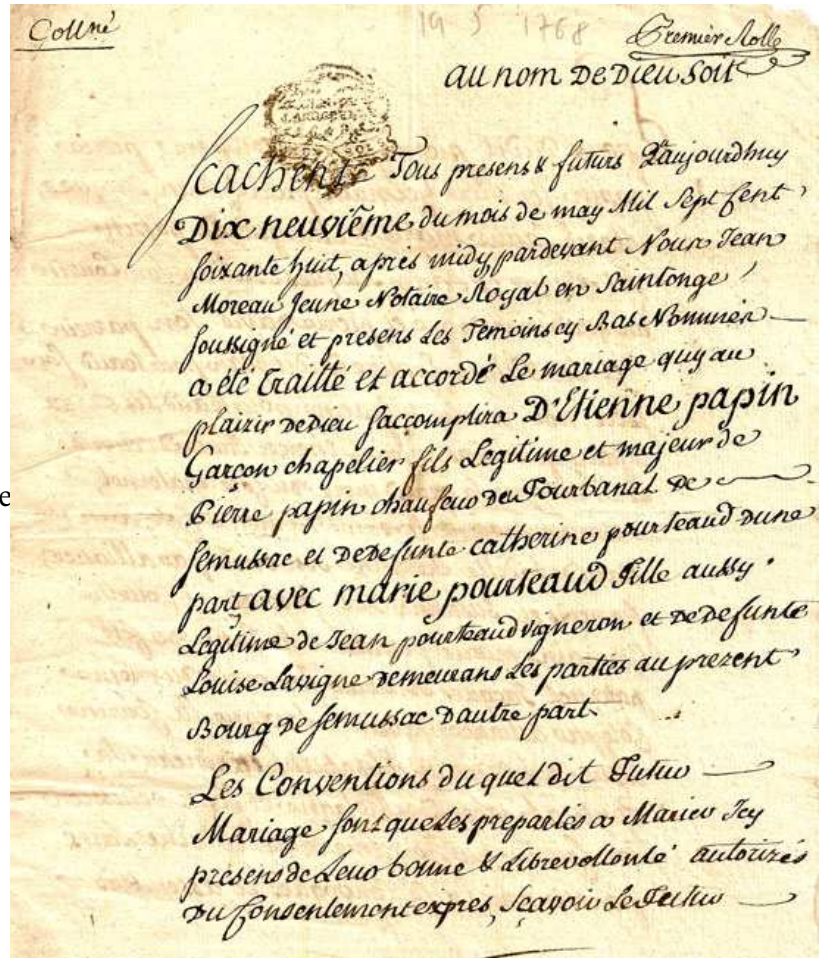 Collné
19 5 1768
Premier Rolle
au nom De Dieu Soit
Scachent Tous presens & futurs Qaujourdhuy
Dix neuviême du mois de may Mil Sept Cent
soixante huit, aprés midy, pardevant Nous Jean
Moreau Jeune Notaire Royal en Saintonge
soussigné et presens Les Temoins cy Bas Nommés
a été traitté et accordé Le mariage quy au
plaizir de Dieu saccomplira D'Etienne papin
Garçon chapelier fils Legitime et majeur de
Pierre papin chaufeur de Four banal de
semussac et de defunte catherine pourteaud dune
part avec marie pourteaud Fille aussy
Legitime de Jean pourteaud vigneron et de defunte
Louise Lavigne demeurans Les parties au prezent
Bourg de semussac d'autre part
Les Conventions du quel dit Futur
Mariage sont que Les preparlés a Marier Icy
presens de Leur bonne & Libre vollonté autorizés
Du Consentement exprés, sçavoir Le Futur
e